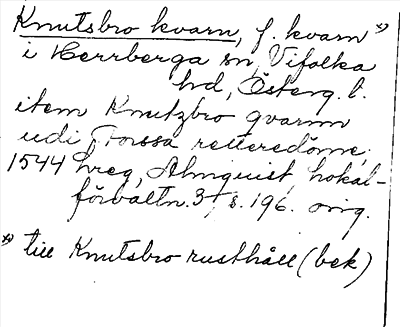 Knutsbro kvarn, f. kvarn *)
i Herrberga sn, Vifolka
hd, Österg. l.
item Knutzbro qvarnn
udi Forssa retteredöme,
1544 hreg, Almquist, Lokal-
förvaltn. 3, s. 196. orig.
*) till Knutsbro rusthåll (bek)